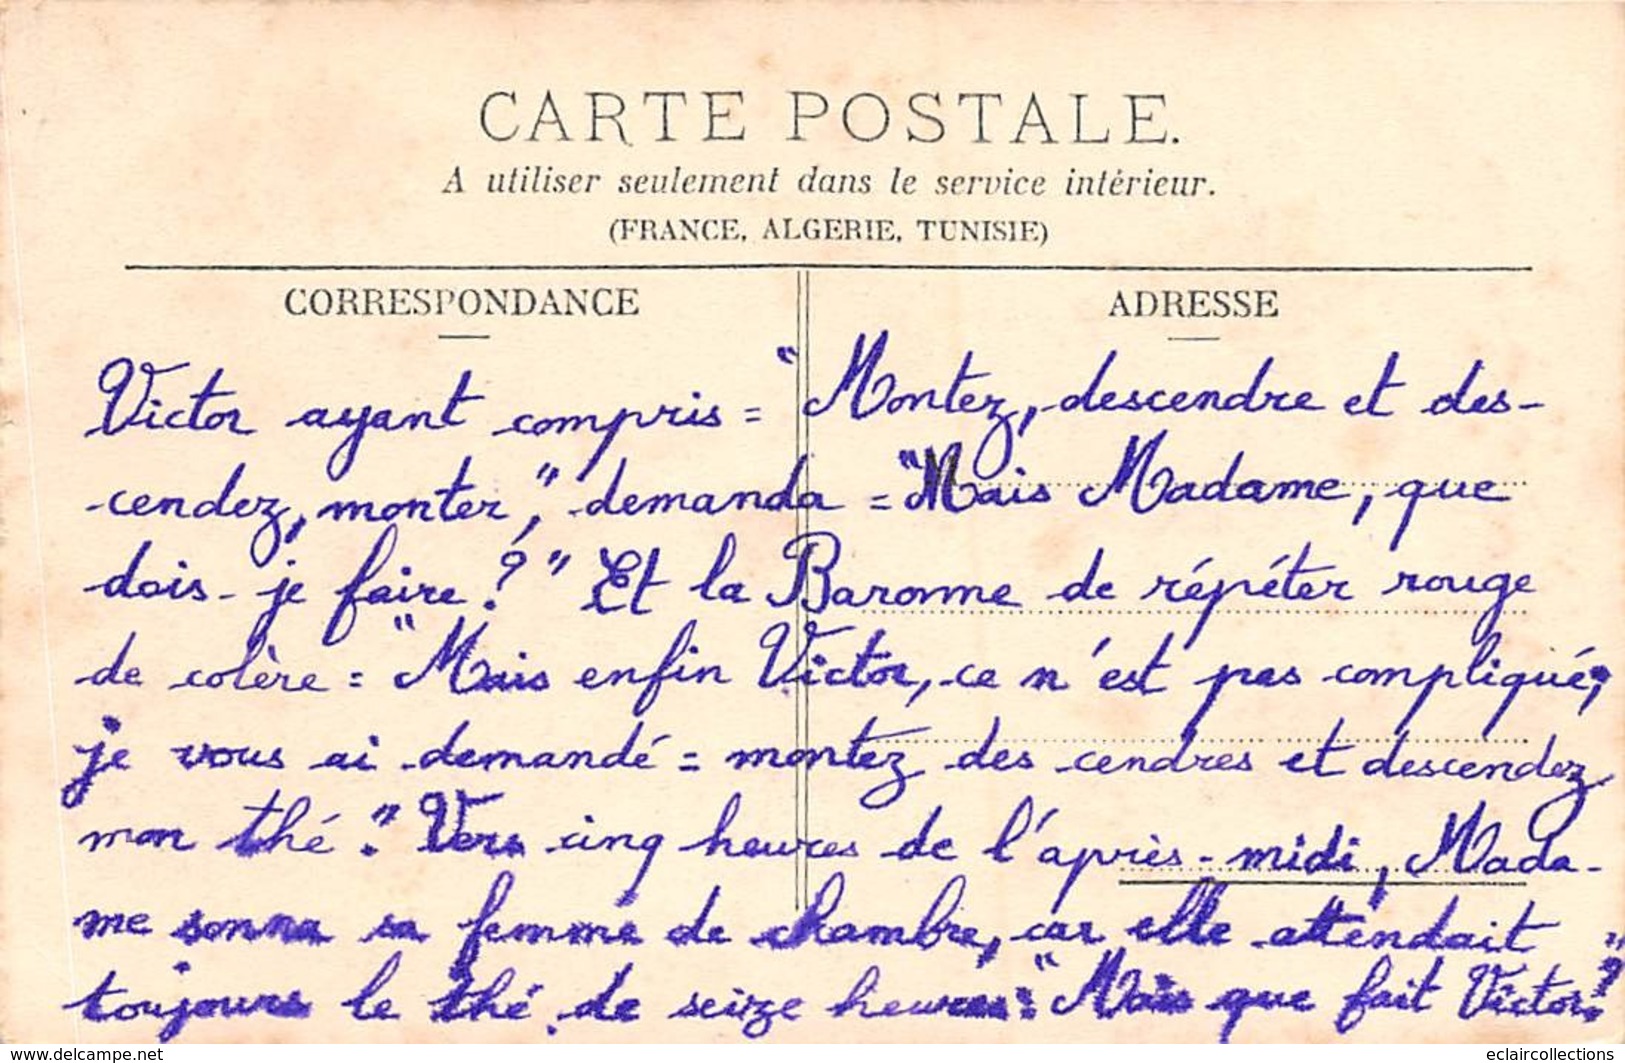 CARTE POSTALE.
A utiliser seulement dans le service intérieur.
(FRANCE, ALGERIE, TUNISIE)
CORRESPONDANCE
ADRESSE
Victor ayant compris = "Montez, descendre et des-
cendez, monter", demanda = "Mais Madame, que
dois-je faire?" Et la Baronne de répéter rouge
de colère = "Mais enfin Victor, ce n'est pas compliqué,
je vous ai demandé = montez des cendres et descendez
mon thé." Vers cinq heures de l'après-midi, Mada-
me sonna sa femme de chambre, car elle attendait
toujours le thé de seize heures: "Mais que fait Victor?"
www.delcampe.net
eclaircollections